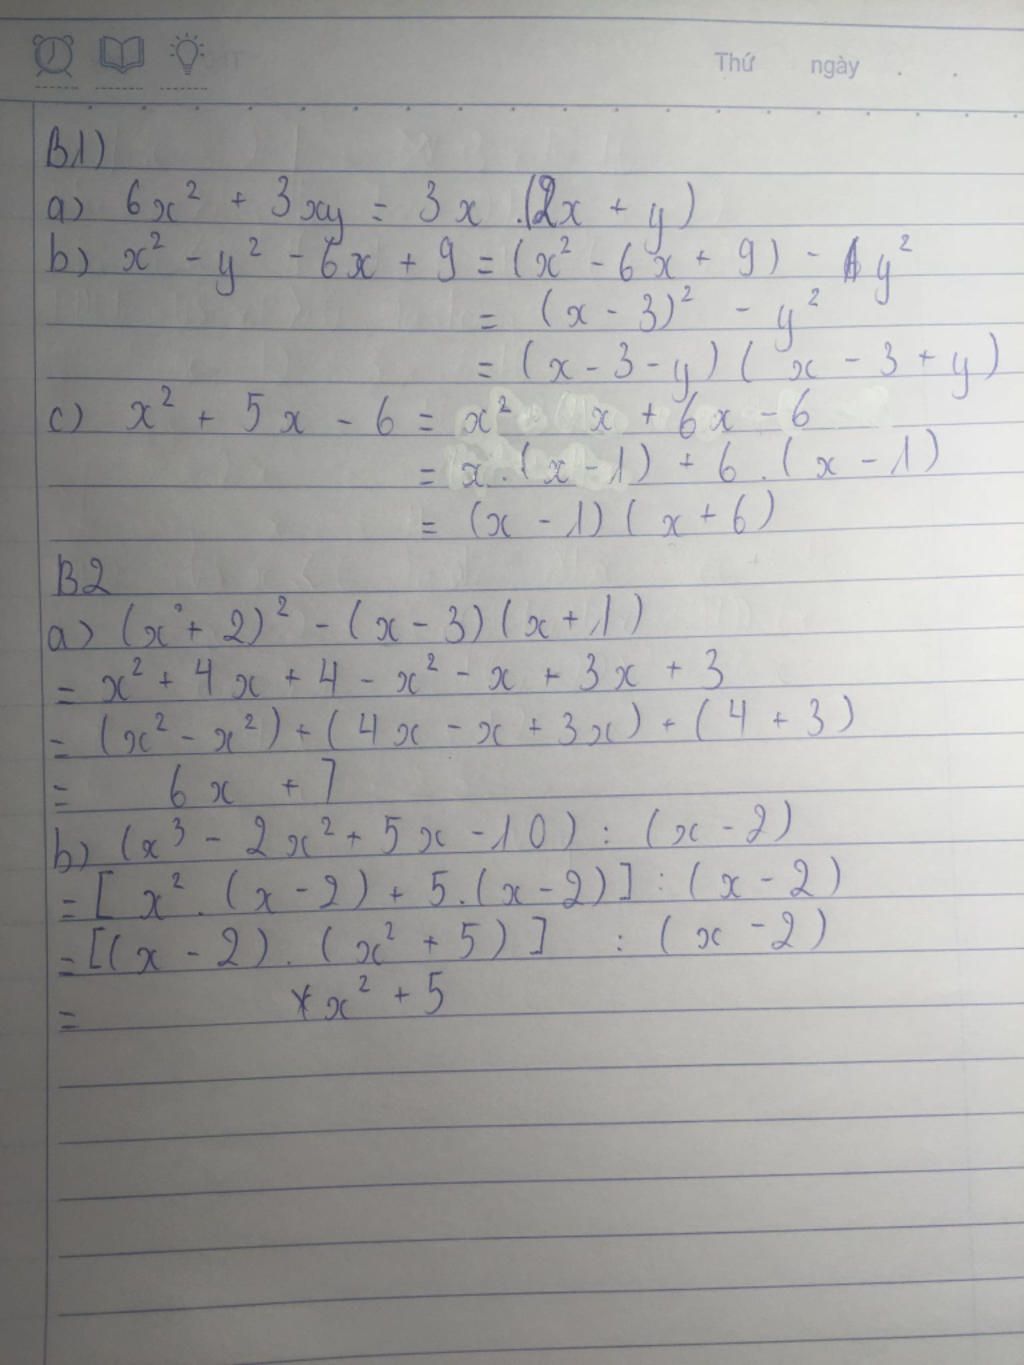 Thứ ngày . .
B1)
a) 6x² + 3xy = 3x .(2x + y)
b) x² - y² - 6x + 9 = (x² - 6x + 9) - y²
= (x - 3)² - y²
= (x - 3 - y) ( x - 3 + y)
c) x² + 5x - 6 = x² x + 6x - 6
= x.(x - 1) + 6.(x - 1)
= (x - 1)(x + 6)
B2
a) (x + 2)² - (x - 3)(x + 1)
= x² + 4x + 4 - x² - x + 3x + 3
= (x² - x²) + (4x - x + 3x) + (4 + 3)
= 6x + 7
b) (x³ - 2x² + 5x - 10) : (x - 2)
= [x².(x - 2) + 5.(x - 2)] : (x - 2)
= [(x - 2).(x² + 5)] : (x - 2)
= x² + 5